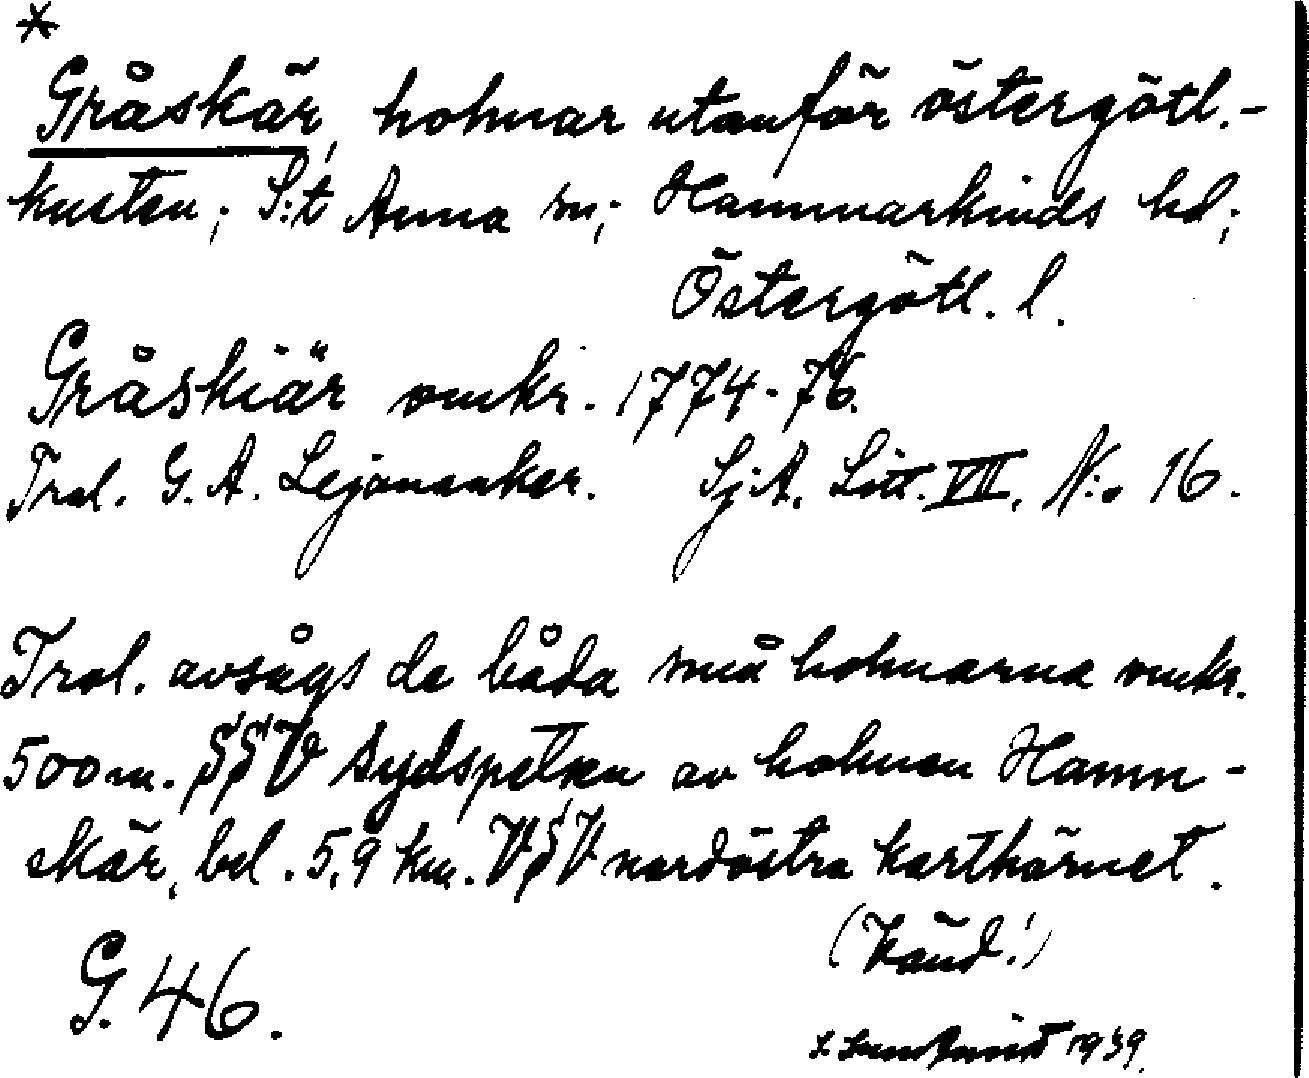 *
Gråskär, holmar utanför östergötl.-
kusten; S:t Anna sn; Hammarkinds hd;
Östergötl. l.
Gråskiär omkr. 1774-76.
Trol. G. A. Lejonanker. Sj.A. Litt. VII. N:o 16.
Trol. avsågs de båda små holmarna omkr.
500 m. SSV sydspetsen av holmen Hamn-
skär, bel. 5,9 km. VSV nordöstra karthörnet.
(Känd!)
G. 46.
1939.